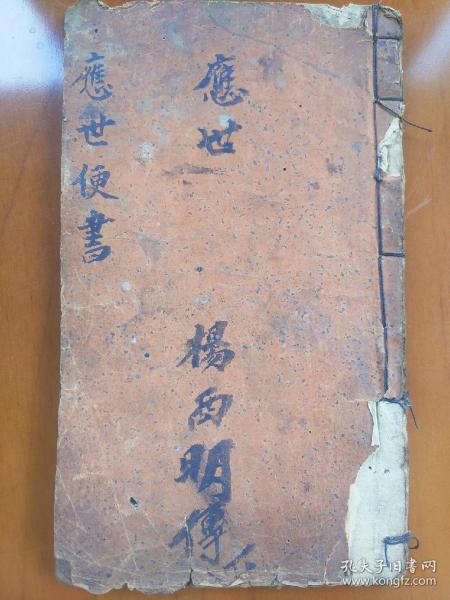 應世便書
應世
楊西明傳
孔夫子旧书网
www.kongfz.com